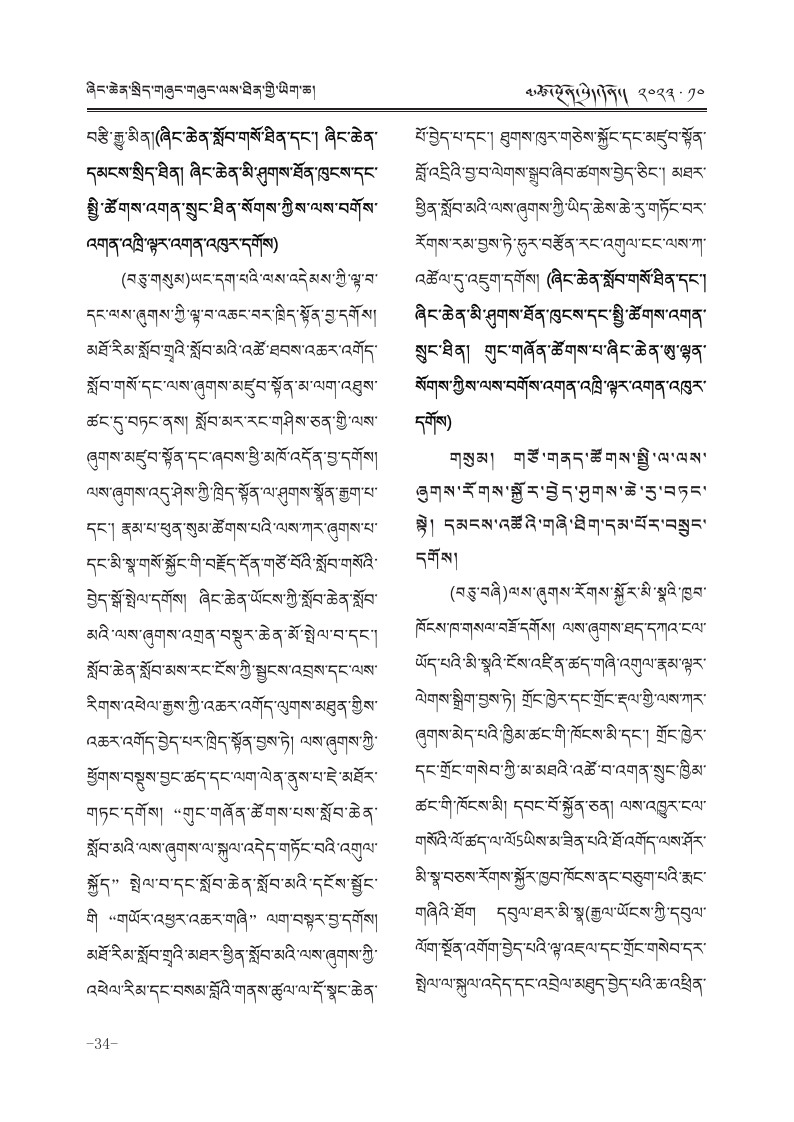 ཞིང་ཆེན་སྲིད་གཞུང་གཞུང་ལས་ཐིན་གྱི་ཡིག་ཆ།
༢༠༢༣ · ༡༠
བརྩི་རྒྱུ་མིན།(ཞིང་ཆེན་སློབ་གསོ་ཐིན་དང་། ཞིང་ཆེན་
དམངས་སྲིད་ཐིན། ཞིང་ཆེན་མི་ཤུགས་ཐོན་ཁུངས་དང་
སྤྱི་ཚོགས་འགན་སྲུང་ཐིན་སོགས་ཀྱིས་ལས་བགོས་
འགན་འཁྲི་ལྟར་འགན་འཁུར་དགོས)
(བཅུ་གསུམ)ཡང་དག་པའི་ལས་འདེམས་ཀྱི་ལྟ་བ་
དང་ལས་ཞུགས་ཀྱི་ལྟ་བ་འཆང་བར་ཁྲིད་སྟོན་བྱ་དགོས།
མཐོ་རིམ་སློབ་གྲྭའི་སློབ་མའི་འཚོ་ཐབས་འཆར་འགོད་
སློབ་གསོ་དང་ལས་ཞུགས་མཛུབ་སྟོན་མ་ལག་འཐུས་
ཚང་དུ་བཏང་ནས། སློབ་མར་རང་གཤིས་ཅན་གྱི་ལས་
ཞུགས་མཛུབ་སྟོན་དང་ཞབས་ཕྱི་མཁོ་འདོན་བྱ་དགོས།
ལས་ཞུགས་འདུ་ཤེས་ཀྱི་ཁྲིད་སྟོན་ལ་ཤུགས་སྣོན་རྒྱག་པ་
དང་། རྣམ་པ་ཕུན་སུམ་ཚོགས་པའི་ལས་ཀར་ཞུགས་པ་
དང་མི་སྣ་གསོ་སྐྱོང་གི་བརྗོད་དོན་གཙོ་བོའི་སློབ་གསོའི་
བྱེད་སྒོ་སྤེལ་དགོས། ཞིང་ཆེན་ཡོངས་ཀྱི་སློབ་ཆེན་སློབ་
མའི་ལས་ཞུགས་འགྲན་བསྡུར་ཆེན་མོ་སྤེལ་བ་དང་།
སློབ་ཆེན་སློབ་མས་རང་ངོས་ཀྱི་སྦྱངས་འབྲས་དང་ལས་
རིགས་འཕེལ་རྒྱས་ཀྱི་འཆར་འགོད་ལུགས་མཐུན་གྱིས་
འཆར་འགོད་བྱེད་པར་ཁྲིད་སྟོན་བྱས་ཏེ། ལས་ཞུགས་ཀྱི་
ཕྱོགས་བསྡུས་བྱང་ཚད་དང་ལག་ལེན་ནུས་པ་ཇེ་མཐོར་
གཏང་དགོས། “གུང་གཞོན་ཚོགས་པས་སློབ་ཆེན་
སློབ་མའི་ལས་ཞུགས་ལ་སྐུལ་འདེད་གཏོང་བའི་འགུལ་
སྐྱོད” སྤེལ་བ་དང་སློབ་ཆེན་སློབ་མའི་དངོས་སྦྱོང་
གི “གཡོར་འཕྱར་འཆར་གཞི” ལག་བསྟར་བྱ་དགོས།
མཐོ་རིམ་སློབ་གྲྭའི་མཐར་ཕྱིན་སློབ་མའི་ལས་ཞུགས་ཀྱི་
འཕེལ་རིམ་དང་བསམ་བློའི་གནས་ཚུལ་ལ་དོ་སྣང་ཆེན་
པོ་བྱེད་པ་དང་། ཐུགས་ཁུར་གཅེས་སྐྱོང་དང་མཛུབ་སྟོན་
བློ་འདྲིའི་བྱ་བ་ལེགས་སྒྲུབ་ཞིབ་ཚགས་བྱེད་ཅིང་། མཐར་
ཕྱིན་སློབ་མའི་ལས་ཞུགས་ཀྱི་ཡིད་ཆེས་ཆེ་རུ་གཏོང་བར་
རོགས་རམ་བྱས་ཏེ་ཧུར་བརྩོན་རང་འགུལ་ངང་ལས་ཀ་
འཚོལ་དུ་འཇུག་དགོས། (ཞིང་ཆེན་སློབ་གསོ་ཐིན་དང་།
ཞིང་ཆེན་མི་ཤུགས་ཐོན་ཁུངས་དང་སྤྱི་ཚོགས་འགན་
སྲུང་ཐིན། གུང་གཞོན་ཚོགས་པ་ཞིང་ཆེན་ཨུ་ལྷན་
སོགས་ཀྱིས་ལས་བགོས་འགན་འཁྲི་ལྟར་འགན་འཁུར་
དགོས)
གསུམ། གཙོ་གནད་ཚོགས་སྤྱི་ལ་ལས་
ཞུགས་རོགས་སྐྱོར་བྱེད་ཤུགས་ཆེ་རུ་བཏང་
སྟེ། དམངས་འཚོའི་གཞི་ཐིག་དམ་པོར་བསྲུང་
དགོས།
(བཅུ་བཞི)ལས་ཞུགས་རོགས་སྐྱོར་མི་སྣའི་ཁྱབ་
ཁོངས་ཁ་གསལ་བཟོ་དགོས། ལས་ཞུགས་ཐད་དཀའ་ངལ་
ཡོད་པའི་མི་སྣའི་ངོས་འཛིན་ཚད་གཞི་འགུལ་རྣམ་ལྟར་
ལེགས་སྒྲིག་བྱས་ཏེ། གྲོང་ཁྱེར་དང་གྲོང་རྡལ་གྱི་ལས་ཀར་
ཞུགས་མེད་པའི་ཁྱིམ་ཚང་གི་ཁོངས་མི་དང་། གྲོང་ཁྱེར་
དང་གྲོང་གསེབ་ཀྱི་མ་མཐའི་འཚོ་བ་འགན་སྲུང་ཁྱིམ་
ཚང་གི་ཁོངས་མི། དབང་པོ་སྐྱོན་ཅན། ལས་འཁྱུར་ངལ་
གསོའི་ལོ་ཚད་ལ་ལོ5ཡིས་མ་ཟིན་པའི་ཐོ་འགོད་ལས་ཤོར་
མི་སྣ་བཅས་རོགས་སྐྱོར་ཁྱབ་ཁོངས་ནང་བཅུག་པའི་རྨང་
གཞིའི་ཐོག དབུལ་ཐར་མི་སྣ(རྒྱལ་ཡོངས་ཀྱི་དབུལ་
ལོག་སྔོན་འགོག་བྱེད་པའི་ལྟ་འཇལ་དང་གྲོང་གསེབ་དར་
སྤེལ་ལ་སྐུལ་འདེད་དང་འབྲེལ་མཐུད་བྱེད་པའི་ཆ་འཕྲིན་
-34-